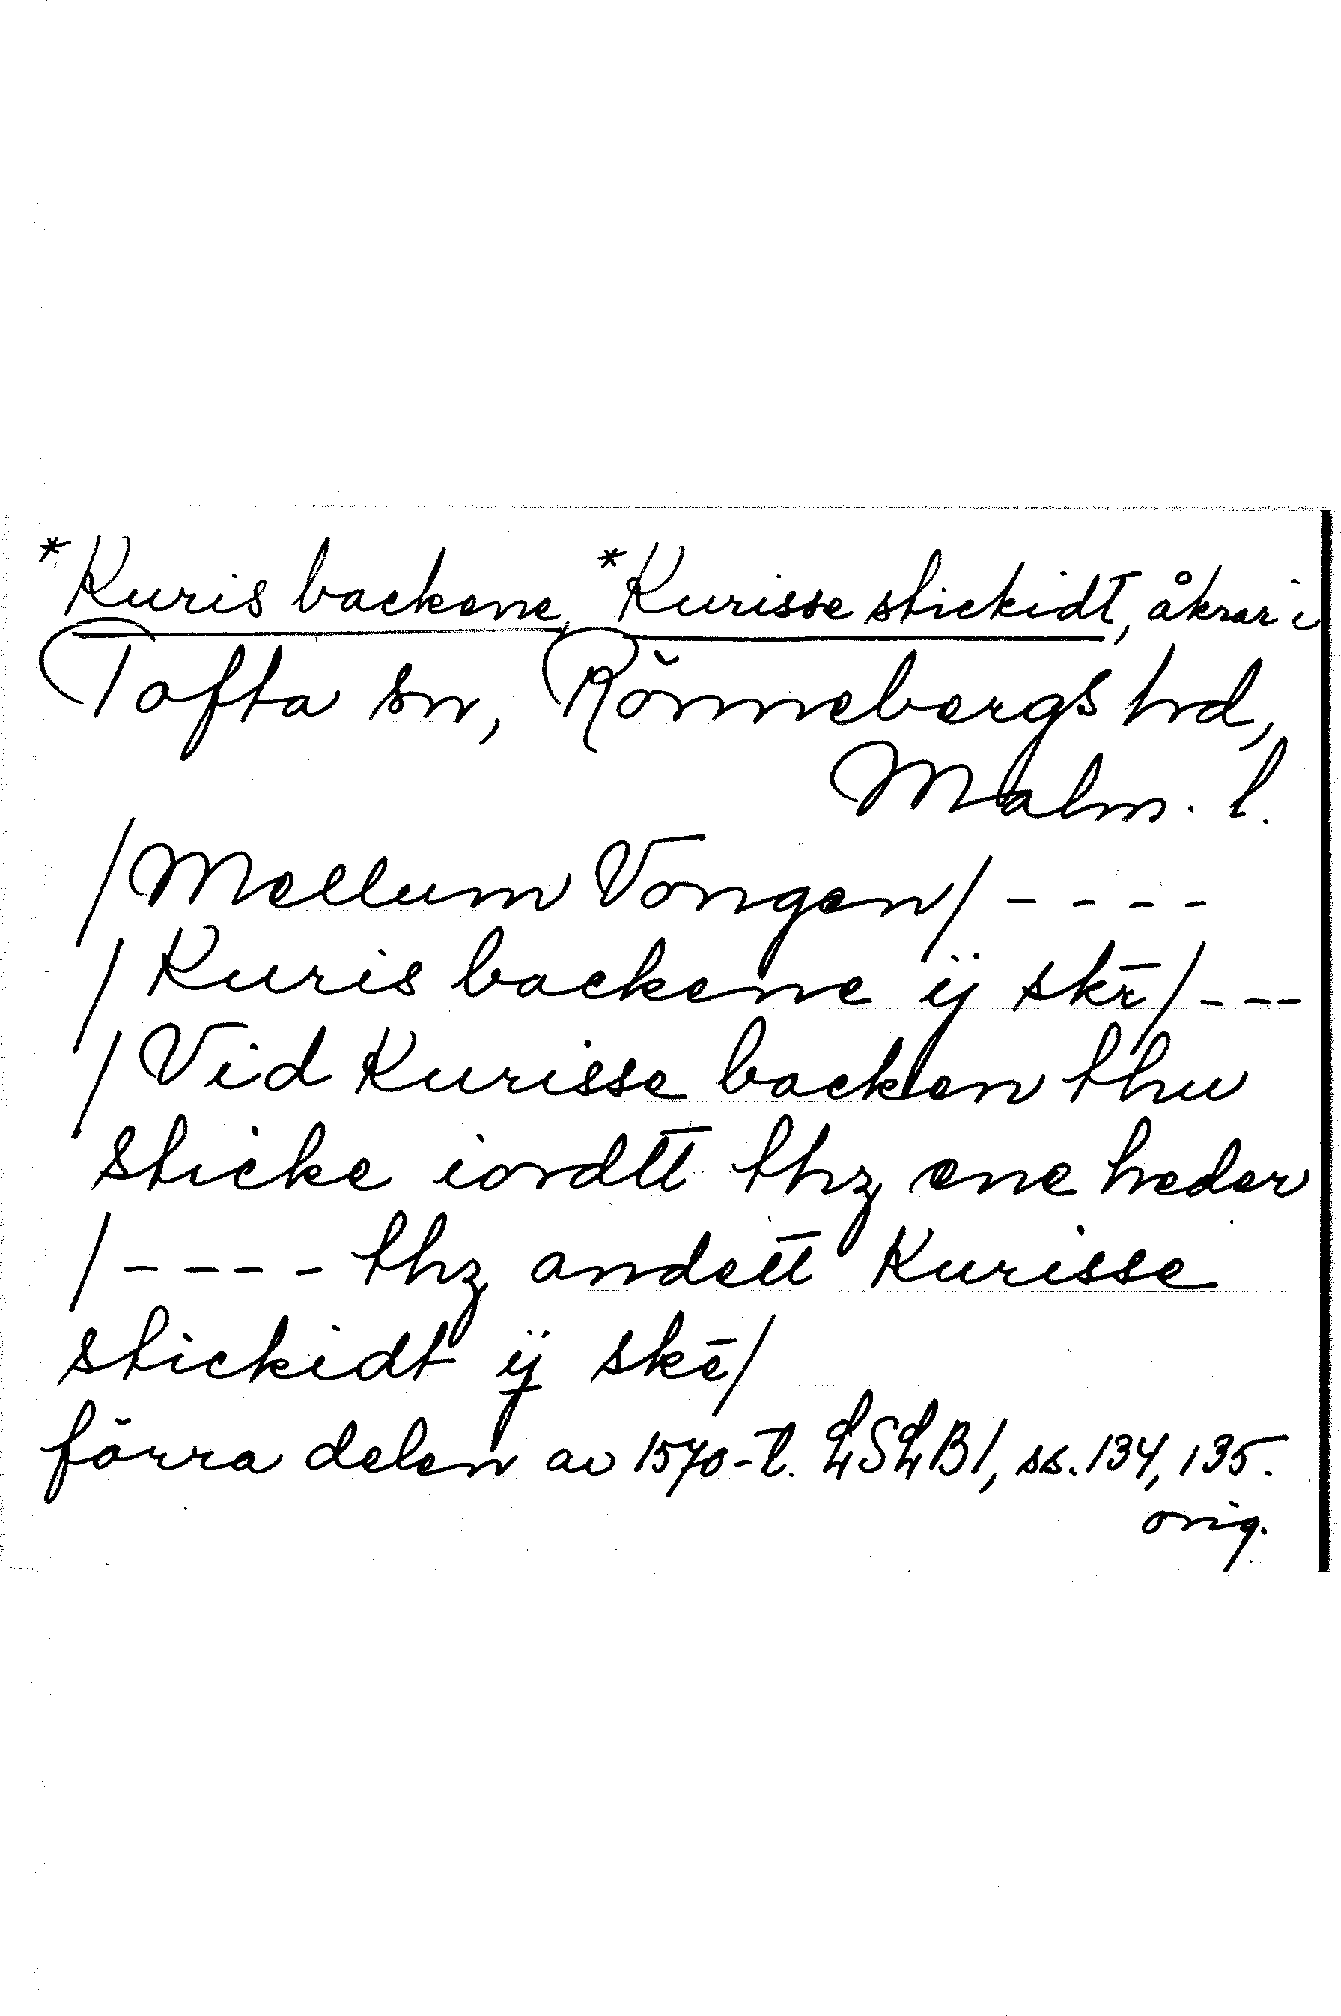 *Kuris backene, *Kurisse stickidt, åkrar i
Tofta sn, Rönnebergs hd,
Malm. l.
/Mellum Vongen/ - - - -
/Kuris backene ij skr̄/ - - -
/Vid Kurisse backen thu
sticke iordtt thz ene heder
/- - - - thz andett Kurisse
stickidt ij skē/
förra delen av 1570-t. LSLB 1, ss. 134, 135.
orig.